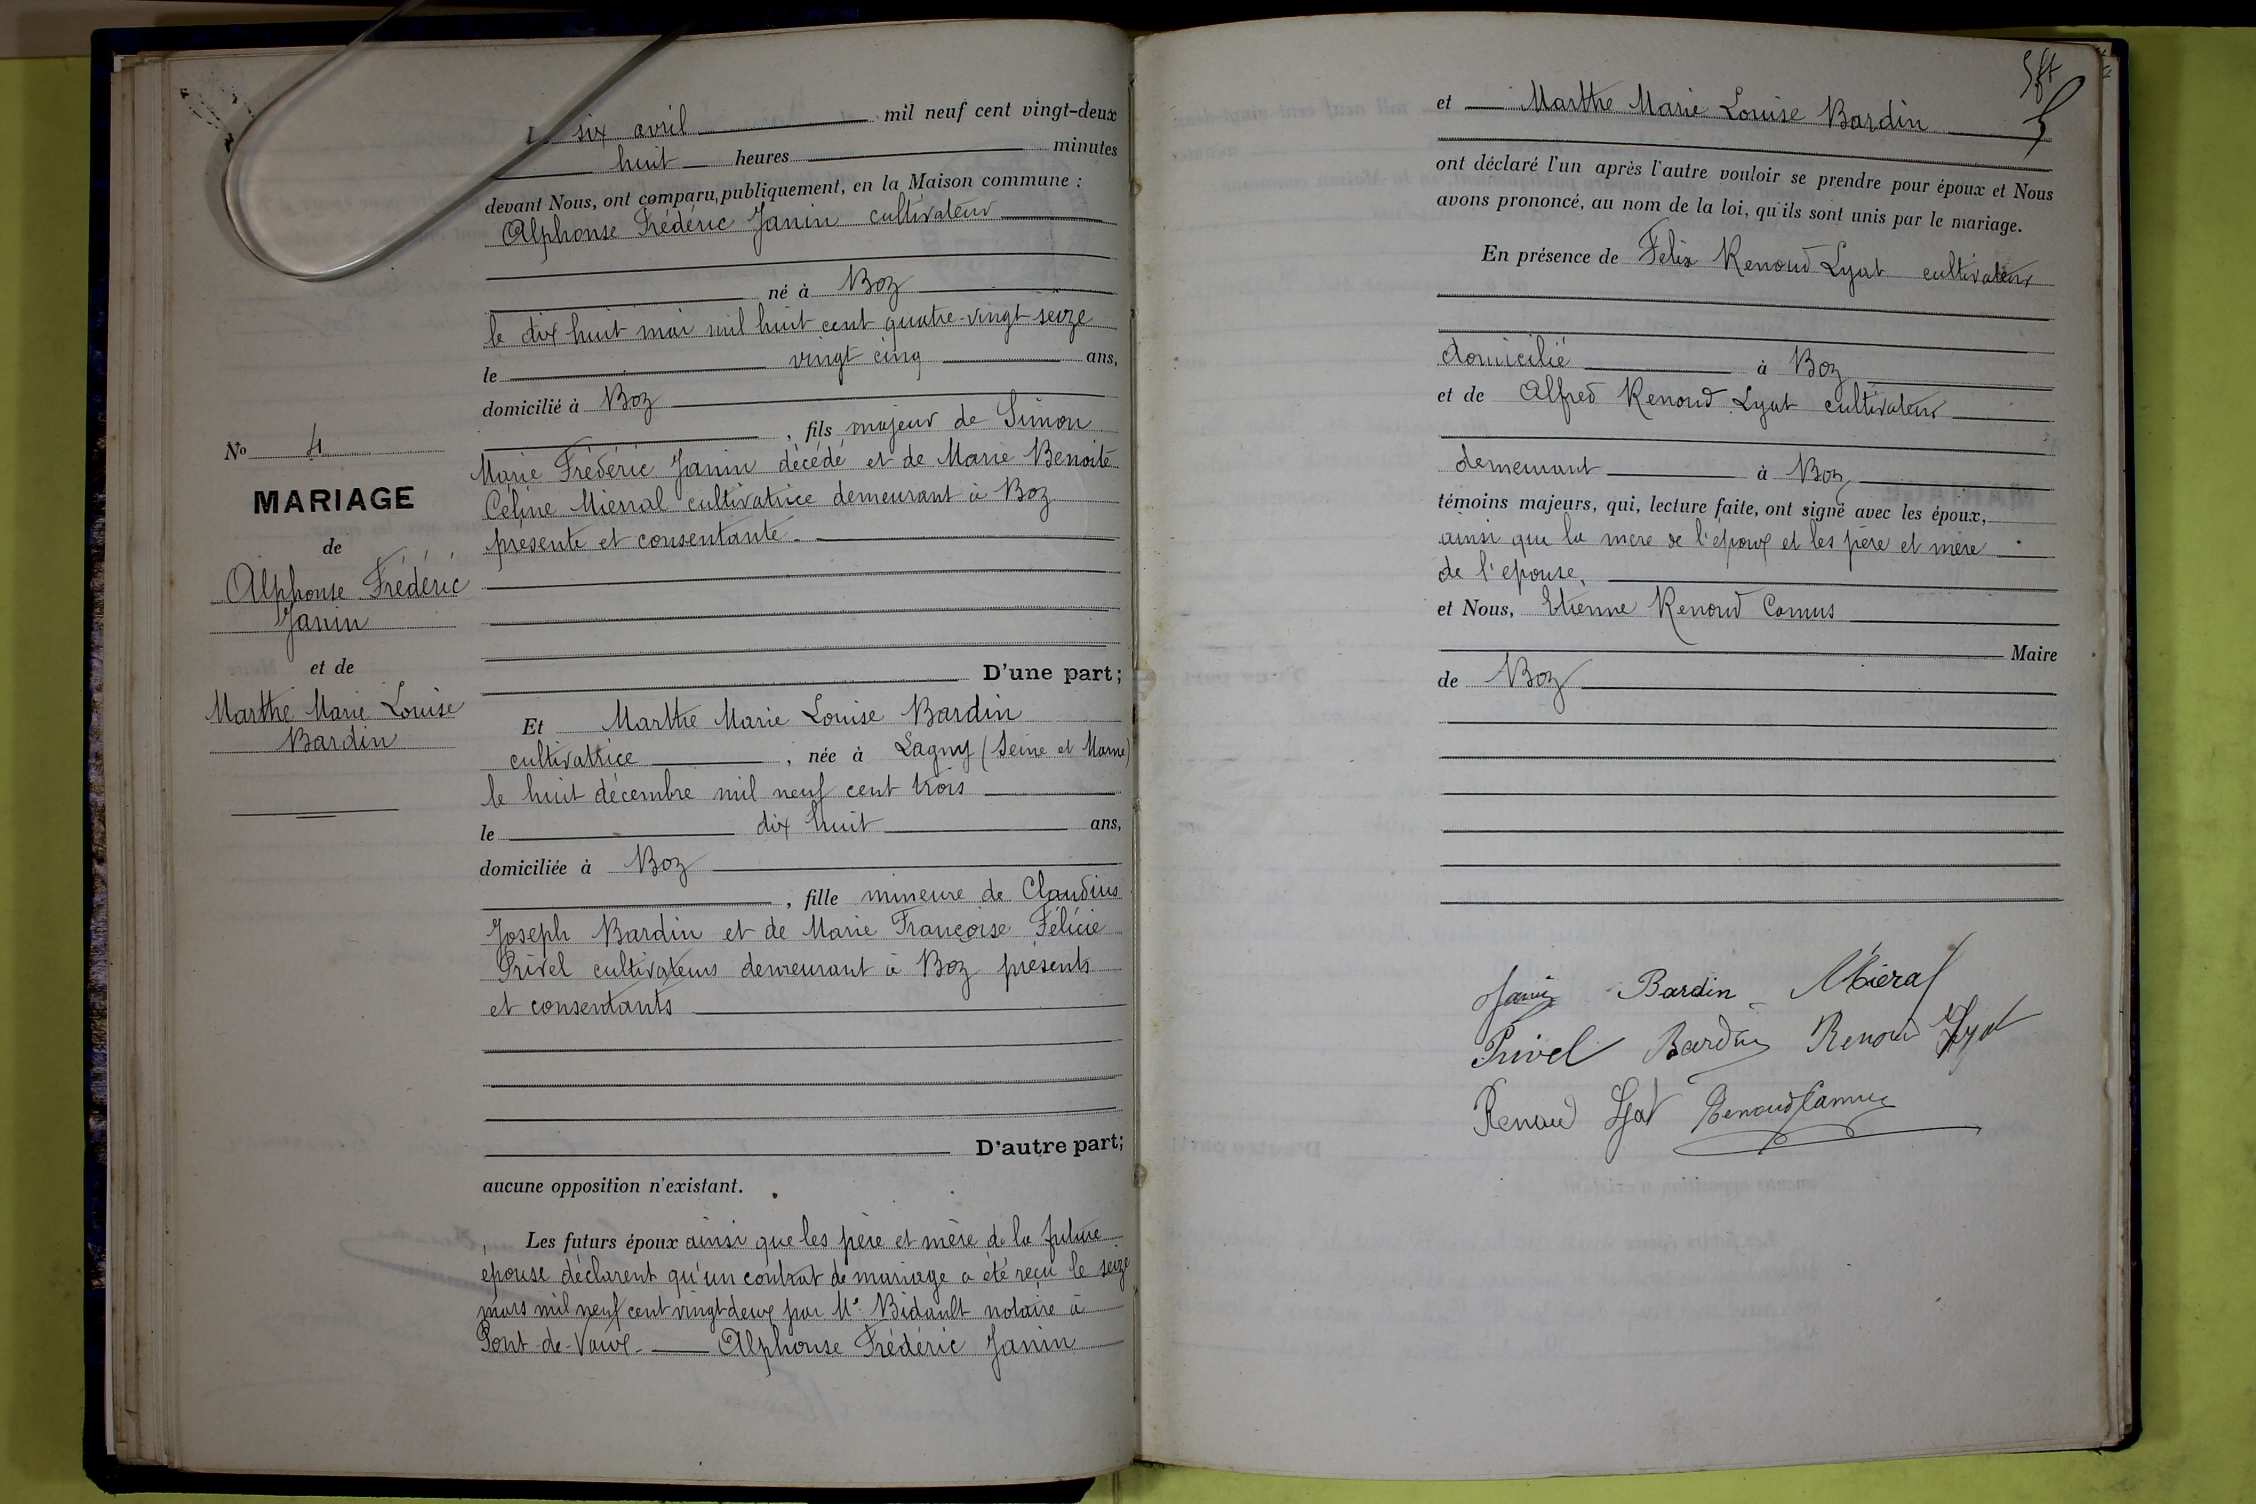 six avril mil neuf cent vingt-deux
huit heures minutes
devant Nous, ont comparu, publiquement, en la Maison commune :
Alphonse Frédéric Janin cultivateur
né à Boz
le dix huit mai mil huit cent quatre-vingt-seize
le vingt cinq ans,
domicilié à Boz
, fils majeur de Simon
Marie Frédéric Janin décédé et de Marie Benoite
Céline Mierral cultivatrice demeurant à Boz
présente et consentante.
D'une part;
Et Marthe Marie Louise Bardin
cultivatrice, née à Lagny (Seine et Marne)
le huit décembre mil neuf cent trois
le dix huit ans,
domiciliée à Boz
, fille mineure de Claudius
Joseph Bardin et de Marie Françoise Félicie
Privel cultivateurs demeurant à Boz présents
et consentants
D'autre part;
aucune opposition n'existant.
Les futurs époux ainsi que les père et mère de la future
épouse déclarent qu'un contrat de mariage a été reçu le seize
mars mil neuf cent vingt deux par Me Bidault notaire à
Pont-de-Vaux. Alphonse Frédéric Janin
No 4
MARIAGE
de
Alphonse Frédéric
Janin
et de
Marthe Marie Louise
Bardin
et Marthe Marie Louise Bardin
ont déclaré l'un après l'autre vouloir se prendre pour époux et Nous
avons prononcé, au nom de la loi, qu'ils sont unis par le mariage.
En présence de Félix Renoud Lyat cultivateur
domicilié à Boz
et de Alfred Renoud Lyat cultivateur
demeurant à Boz
témoins majeurs, qui, lecture faite, ont signé avec les époux,
ainsi que la mère de l'époux et les père et mère
de l'épouse,
et Nous, Etienne Renoud Camus
Maire
de Boz
Janin Bardin Miéral
Privel Bardin Renoud Lyat
Renoud Lyat Renoud Camus